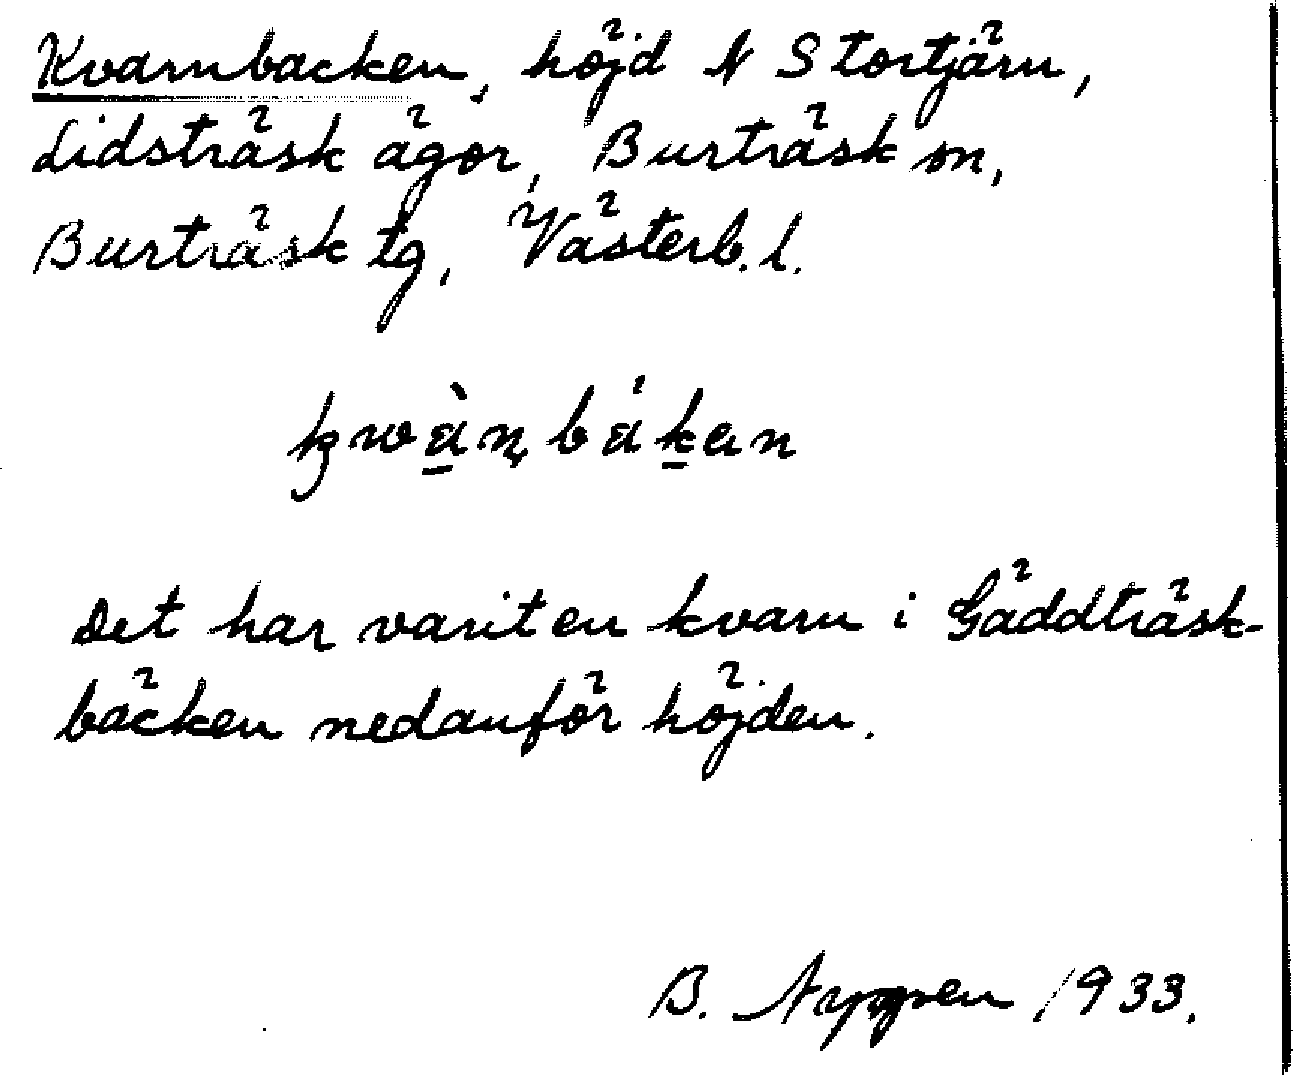 Kvarnbacken, höjd N Stortjärn,
Lidsträsk ägor, Burträsk sn,
Burträsk tg, Västerb. l.
Det har varit en kvarn i Gäddträsk-
bäcken nedanför höjden.
B. Nygren 1933.